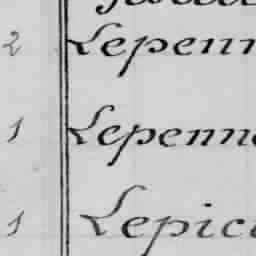 2 Lepenn
1 Lepenn
1 Lepic